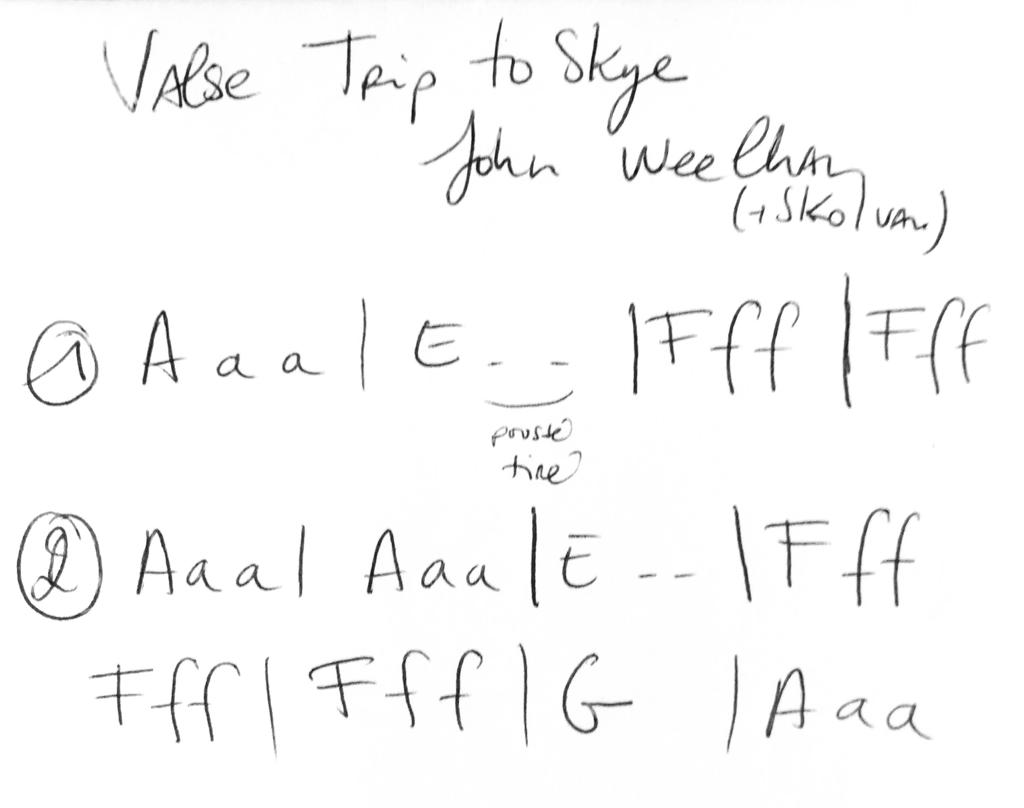 Valse Trip to Skye
John Weelhan
(+ Skolvan)
① A a a | E - - | F f f | F f f
pousse
tire
② A a a | A a a | E - - | F f f
F f f | F f f | G | A a a